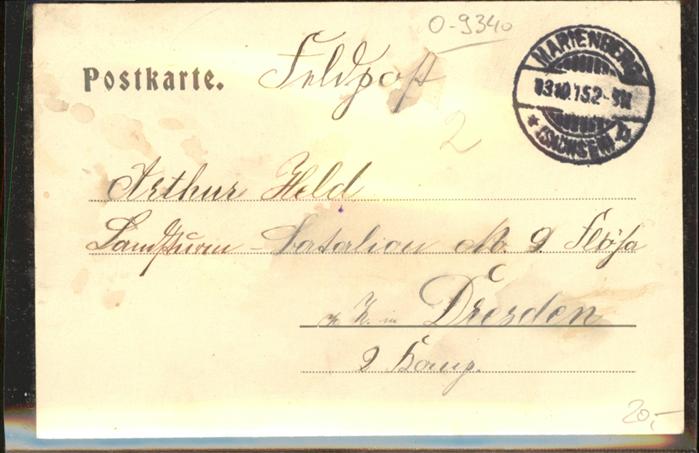 O-9340
Postkarte.
Feldpost
MARIENBERG
13.10.15.2-3N.
* (SACHSEN) b
2
Arthur Held
Landsturm-Batalion No. 9 Flöha
z. Z. in Dresden
2 Komp.
20,-